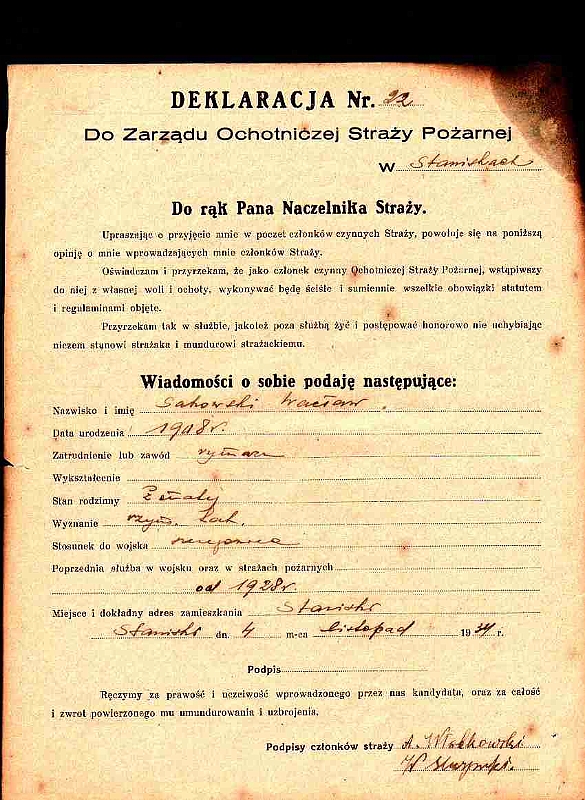 DEKLARACJA Nr. 22
Do Zarządu Ochotniczej Straży Pożarnej
w
Do rąk Pana Naczelnika Straży.
Upraszając o przyjęcie mnie w poczet członków czynnych Straży, powołuję się na poniższą
opinję o mnie wprowadzających mnie członków Straży.
Oświadczam i przyrzekam, że jako członek czynny Ochotniczej Straży Pożarnej, wstąpiwszy
do niej z własnej woli i ochoty, wykonywać będę ściśle i sumiennie wszelkie obowiązki statutem
i regulaminami objęte.
Przyrzekam tak w służbie, jakoteż poza służbą żyć i postępować honorowo nie uchybiając
niczem stanowi strażaka i mundurowi strażackiemu.
Wiadomości o sobie podaję następujące:
Nazwisko i imię Sakowski Wacław
Data urodzenia 1908 r.
Zatrudnienie lub zawód rymarz
Wykształcenie
Stan rodzinny Żonaty
Wyznanie rzym. kat.
Stosunek do wojska rezerwa
Poprzednia służba w wojsku oraz w strażach pożarnych
od 1928 r.
Miejsce i dokładny adres zamieszkania
dn. 4 m-ca listopad 1934 r.
Podpis
Ręczymy za prawość i uczciwość wprowadzonego przez nas kandydata, oraz za całość
i zwrot powierzonego mu umundurowania i uzbrojenia.
Podpisy członków straży A.
W